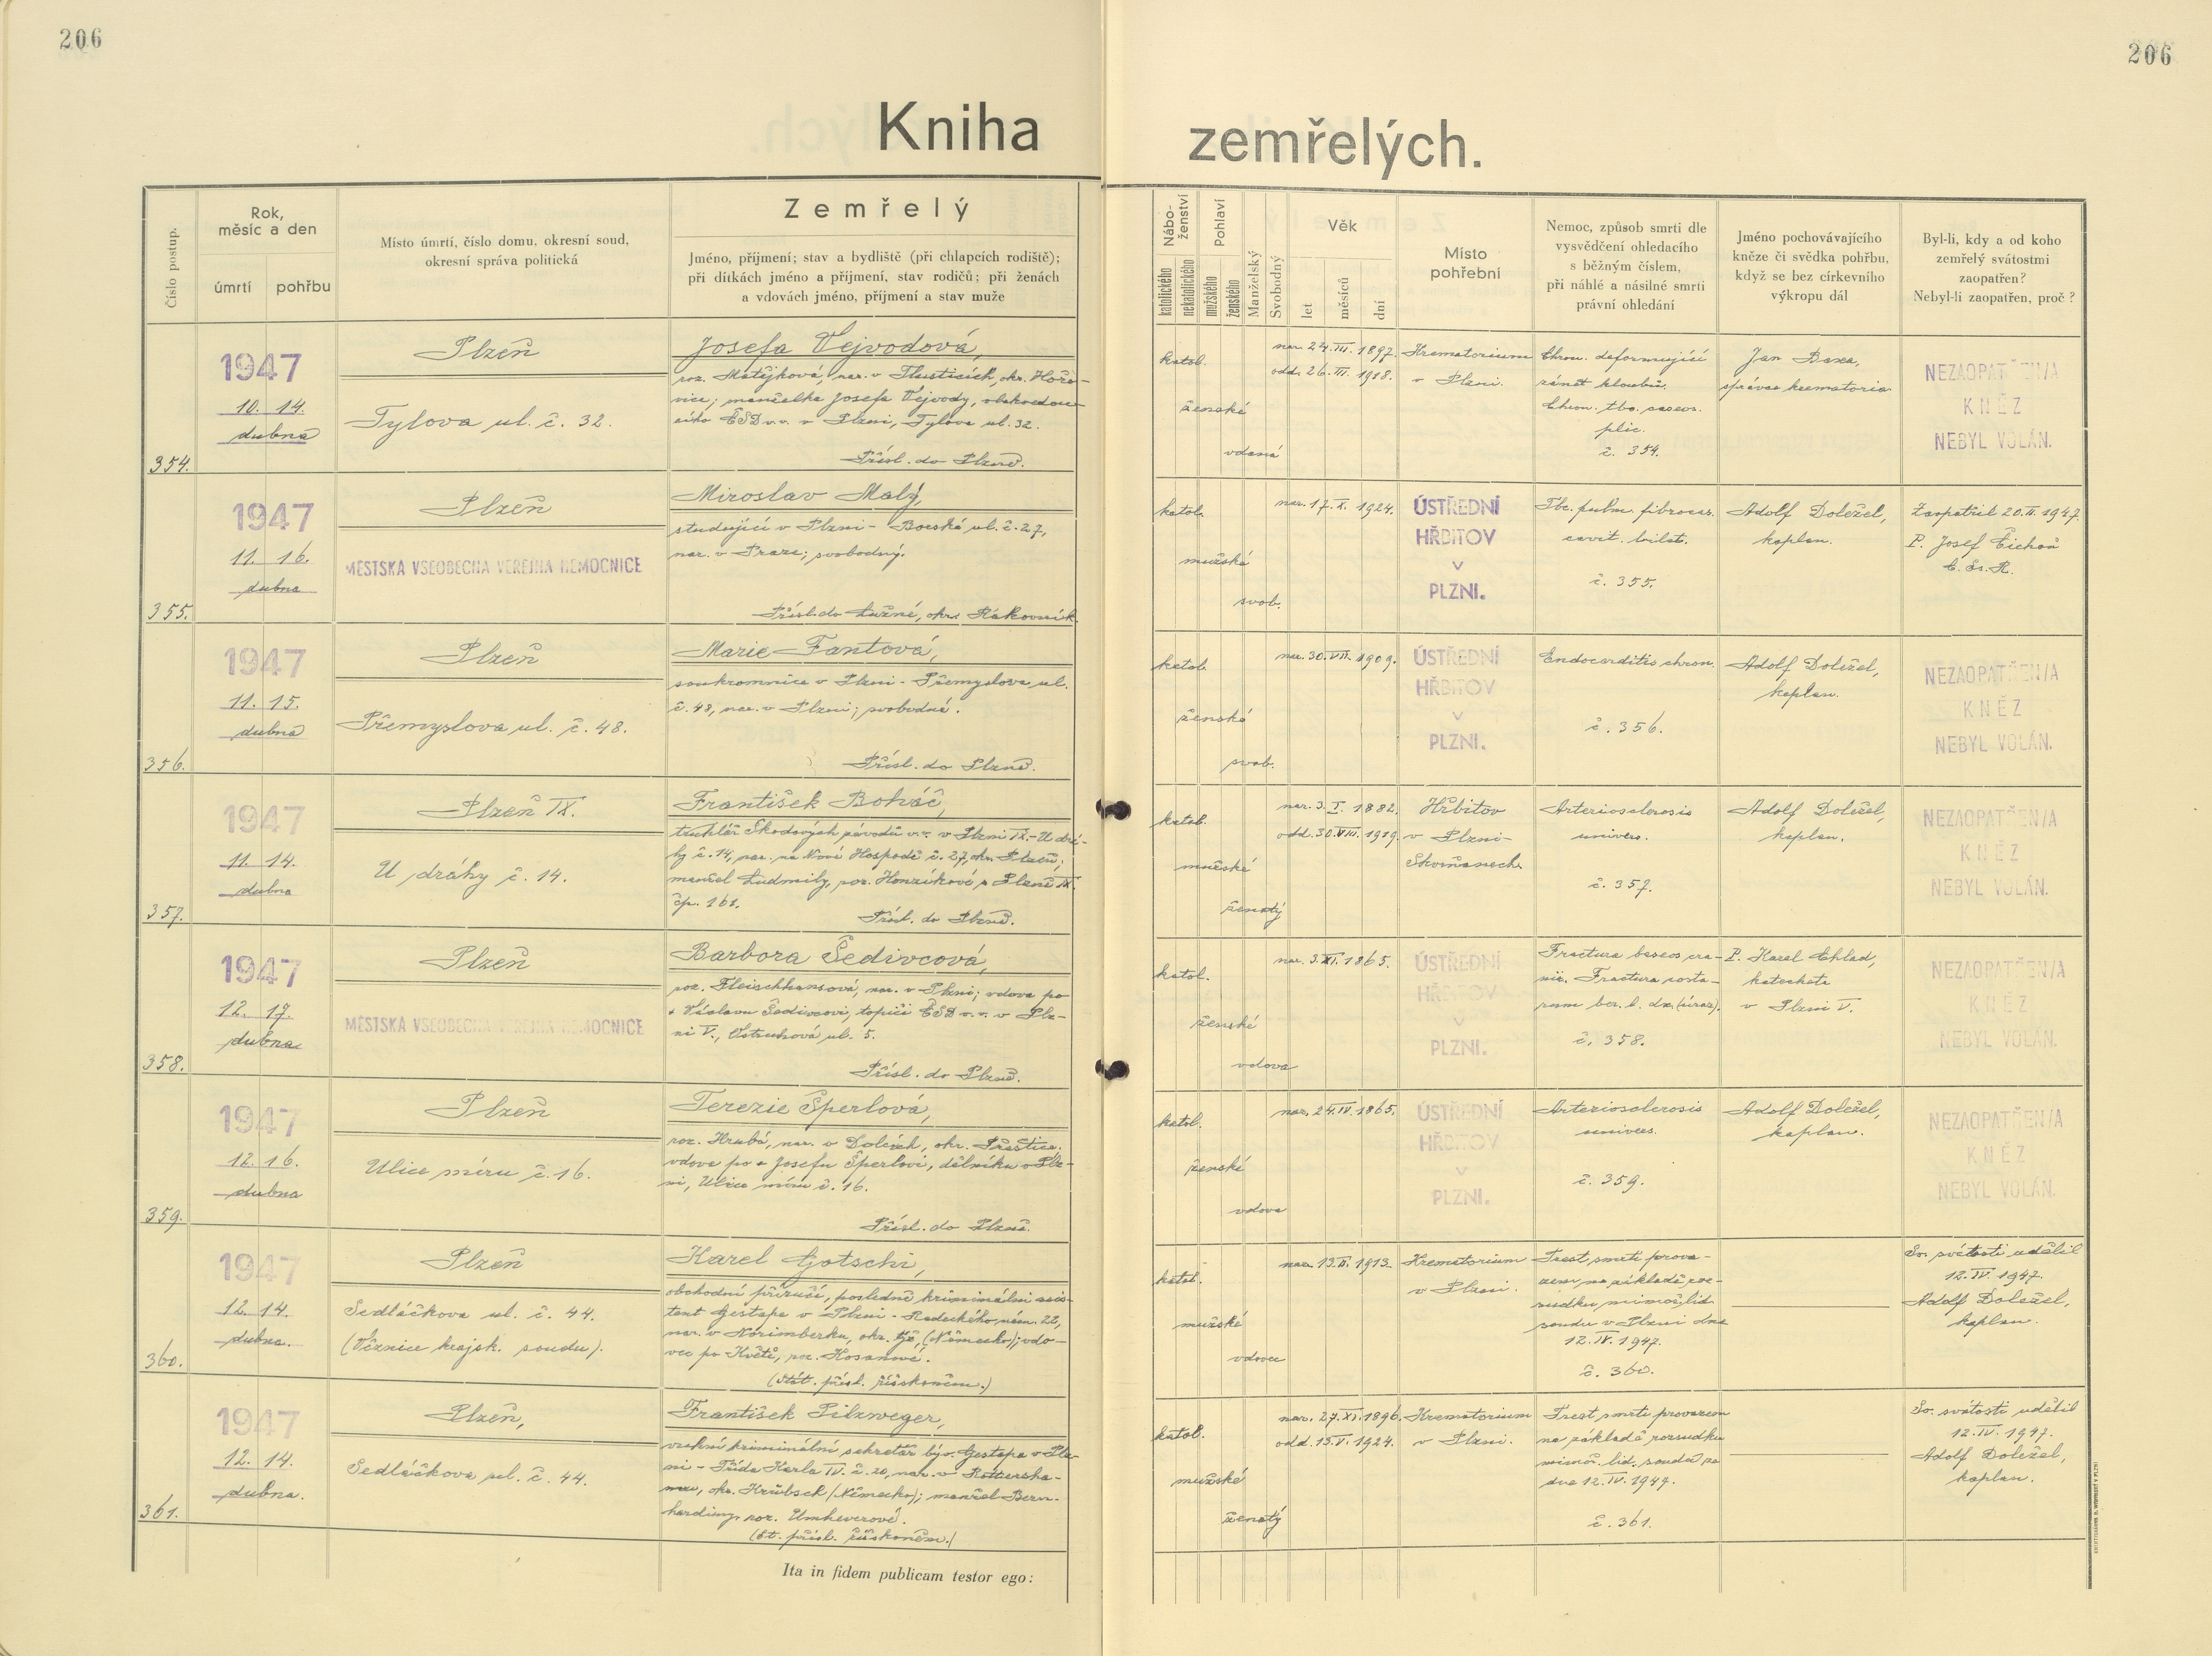 206
206
Kniha zemřelých.
Číslo postup.
Rok,
měsíc a den
úmrtí
pohřbu
Místo úmrtí, číslo domu, okresní soud,
okresní správa politická
Zemřelý
Jméno, příjmení; stav a bydliště (při chlapcích rodiště);
při dítkách jméno a příjmení, stav rodičů; při ženách
a vdovách jméno, příjmení a stav muže
Nábo-
ženství
katolického
nekatolického
Pohlaví
mužského
ženského
Manželský
Svobodný
Věk
let
měsíců
dní
Místo
pohřební
Nemoc, způsob smrti dle
vysvědčení ohledacího
s běžným číslem,
při náhlé a násilné smrti
právní ohledání
Jméno pochovávajícího
kněze či svědka pohřbu,
když se bez církevního
výkropu dál
Byl-li, kdy a od koho
zemřelý svátostmi
zaopatřen?
Nebyl-li zaopatřen, proč?
354.
1947
10. 14.
dubna
Plzeň
Tylova ul. č. 32.
Josefa Vejvodová,
roz. Matějková, nar. v Tlusticích, okr. Hořo-
vice; manželka Josefa Vejvody,
ČSD v.v. v Plzni, Tylova ul. 32.
Přísl. do Plzně.
katol.
ženské
vdaná
nar. 24.III. 1897.
odd. 26.III. 1918.
Krematorium
v Plzni.
Chron. deformující
zánět kloubů.
Chron. tbc. caseos.
plic.
č. 354.
Jan Baxa,
správce krematoria
NEZAOPATŘEN/A
KNĚZ
NEBYL VOLÁN.
355.
1947
11. 16.
dubna
Plzeň
MĚSTSKÁ VŠEOBECNÁ VEŘEJNÁ NEMOCNICE
Miroslav Malý,
studující v Plzni - Borská ul. č. 27,
nar. v Praze; svobodný.
Přísl. do Lužné, okr. Rakovník.
katol.
mužské
svob.
nar. 17.X. 1924.
ÚSTŘEDNÍ
HŘBITOV
v
PLZNI.
Tbc. pulm. fibrocas.
cavit. bilat.
č. 355.
Adolf Doležel,
kaplan.
Zaopatřil 20.II. 1947.
P. Josef Čichoň
C. Ss. R.
356.
1947
11. 15.
dubna
Plzeň
Přemyslova ul. č. 48.
Marie Fantová,
soukromnice v Plzni - Přemyslova ul.
č. 48, nar. v Plzni; svobodná.
Přísl. do Plzně.
katol.
ženské
svob.
nar. 30.VII. 1909.
ÚSTŘEDNÍ
HŘBITOV
v
PLZNI.
Endocarditis chron.
č. 356.
Adolf Doležel,
kaplan.
NEZAOPATŘEN/A
KNĚZ
NEBYL VOLÁN.
357.
1947
11. 14.
dubna
Plzeň IX.
U dráhy č. 14.
František Boháč,
truhlář Škodových závodů v.v. v Plzni IX.-U drá-
hy č. 14, nar. na Nové Hospodě č. 27, okr. Plzeň;
manžel Ludmily, roz. Honzíkové z Plzně IX.
čp. 161.
Přísl. do Plzně.
katol.
mužské
ženatý
nar. 3.I. 1882.
odd. 30.VIII. 1919.
Hřbitov
v Plzni-
Skvrňanech.
Arteriosclerosis
univers.
č. 357.
Adolf Doležel,
kaplan.
NEZAOPATŘEN/A
KNĚZ
NEBYL VOLÁN.
358.
1947
12. 17.
dubna
Plzeň
MĚSTSKÁ VŠEOBECNÁ VEŘEJNÁ NEMOCNICE
Barbora Šedivcová,
roz. Fleischhansová, nar. v Plzni; vdova po
+ Václavu Šedivcovi, topiči ČSD v.v. v Plz-
ni V., ul. 5.
Přísl. do Plzně.
katol.
ženské
vdova
nar. 3.XI. 1865.
ÚSTŘEDNÍ
HŘBITOV
v
PLZNI.
Fractura baseos cra-
nii. Fractura costa-
rum l. dx. (úraz).
č. 358.
P. Karel Chlad,
katecheta
v Plzni V.
NEZAOPATŘEN/A
KNĚZ
NEBYL VOLÁN.
359.
1947
12. 16.
dubna
Plzeň
Ulice míru č. 16.
Terezie Šperlová,
roz. Hrubá, nar. v Dolcích, okr. Přeštice.
vdova po + Josefu Šperlovi, dělníku v Plz-
ni, Ulice míru č. 16.
Přísl. do Plzně.
katol.
ženské
vdova
nar. 24.IV. 1865.
ÚSTŘEDNÍ
HŘBITOV
v
PLZNI.
Arteriosclerosis
univers.
č. 359.
Adolf Doležel,
kaplan.
NEZAOPATŘEN/A
KNĚZ
NEBYL VOLÁN.
360.
1947
12. 14.
dubna.
Plzeň
Sedláčkova ul. č. 44.
(Věznice krajsk. soudu).
Karel Gotschi,
obchodní příručí, posledně kriminální asis-
tent Gestapa v Plzni - Radeckého nám. 22,
nar. v Norimberku, okr. týž, (Německo); vdo-
vec po Květě, roz. Kosanové.
(Stát. přísl. říšskoněm.)
katol.
mužské
vdovec
nar. 13.II. 1913.
Krematorium
v Plzni.
Trest smrti prove-
zen na základě roz-
sudku mimoř. lid.
soudu v Plzni dne
12.IV. 1947.
č. 360.
Sv. svátosti udělil
12.IV. 1947.
Adolf Doležel,
kaplan.
361.
1947
12. 14.
dubna.
Plzeň,
Sedláčkova ul. č. 44.
František Pilzweger,
vrchní kriminální sekretář býv. Gestapa v Plz-
ni - Třída Karla IV. č. 20, nar. v
okr. (Německo); manžel Bern-
hardiny, roz. Umheverové.
(St. přísl. říšskoněm.)
katol.
mužské
ženatý
nar. 27.XI. 1896.
odd. 15.V. 1924.
Krematorium
v Plzni.
Trest smrti provezen
na základě rozsudku
mimoř. lid. soudu ze
dne 12.IV. 1947.
č. 361.
Sv. svátosti udělil
12.IV. 1947.
Adolf Doležel,
kaplan.
Ita in fidem publicam testor ego: